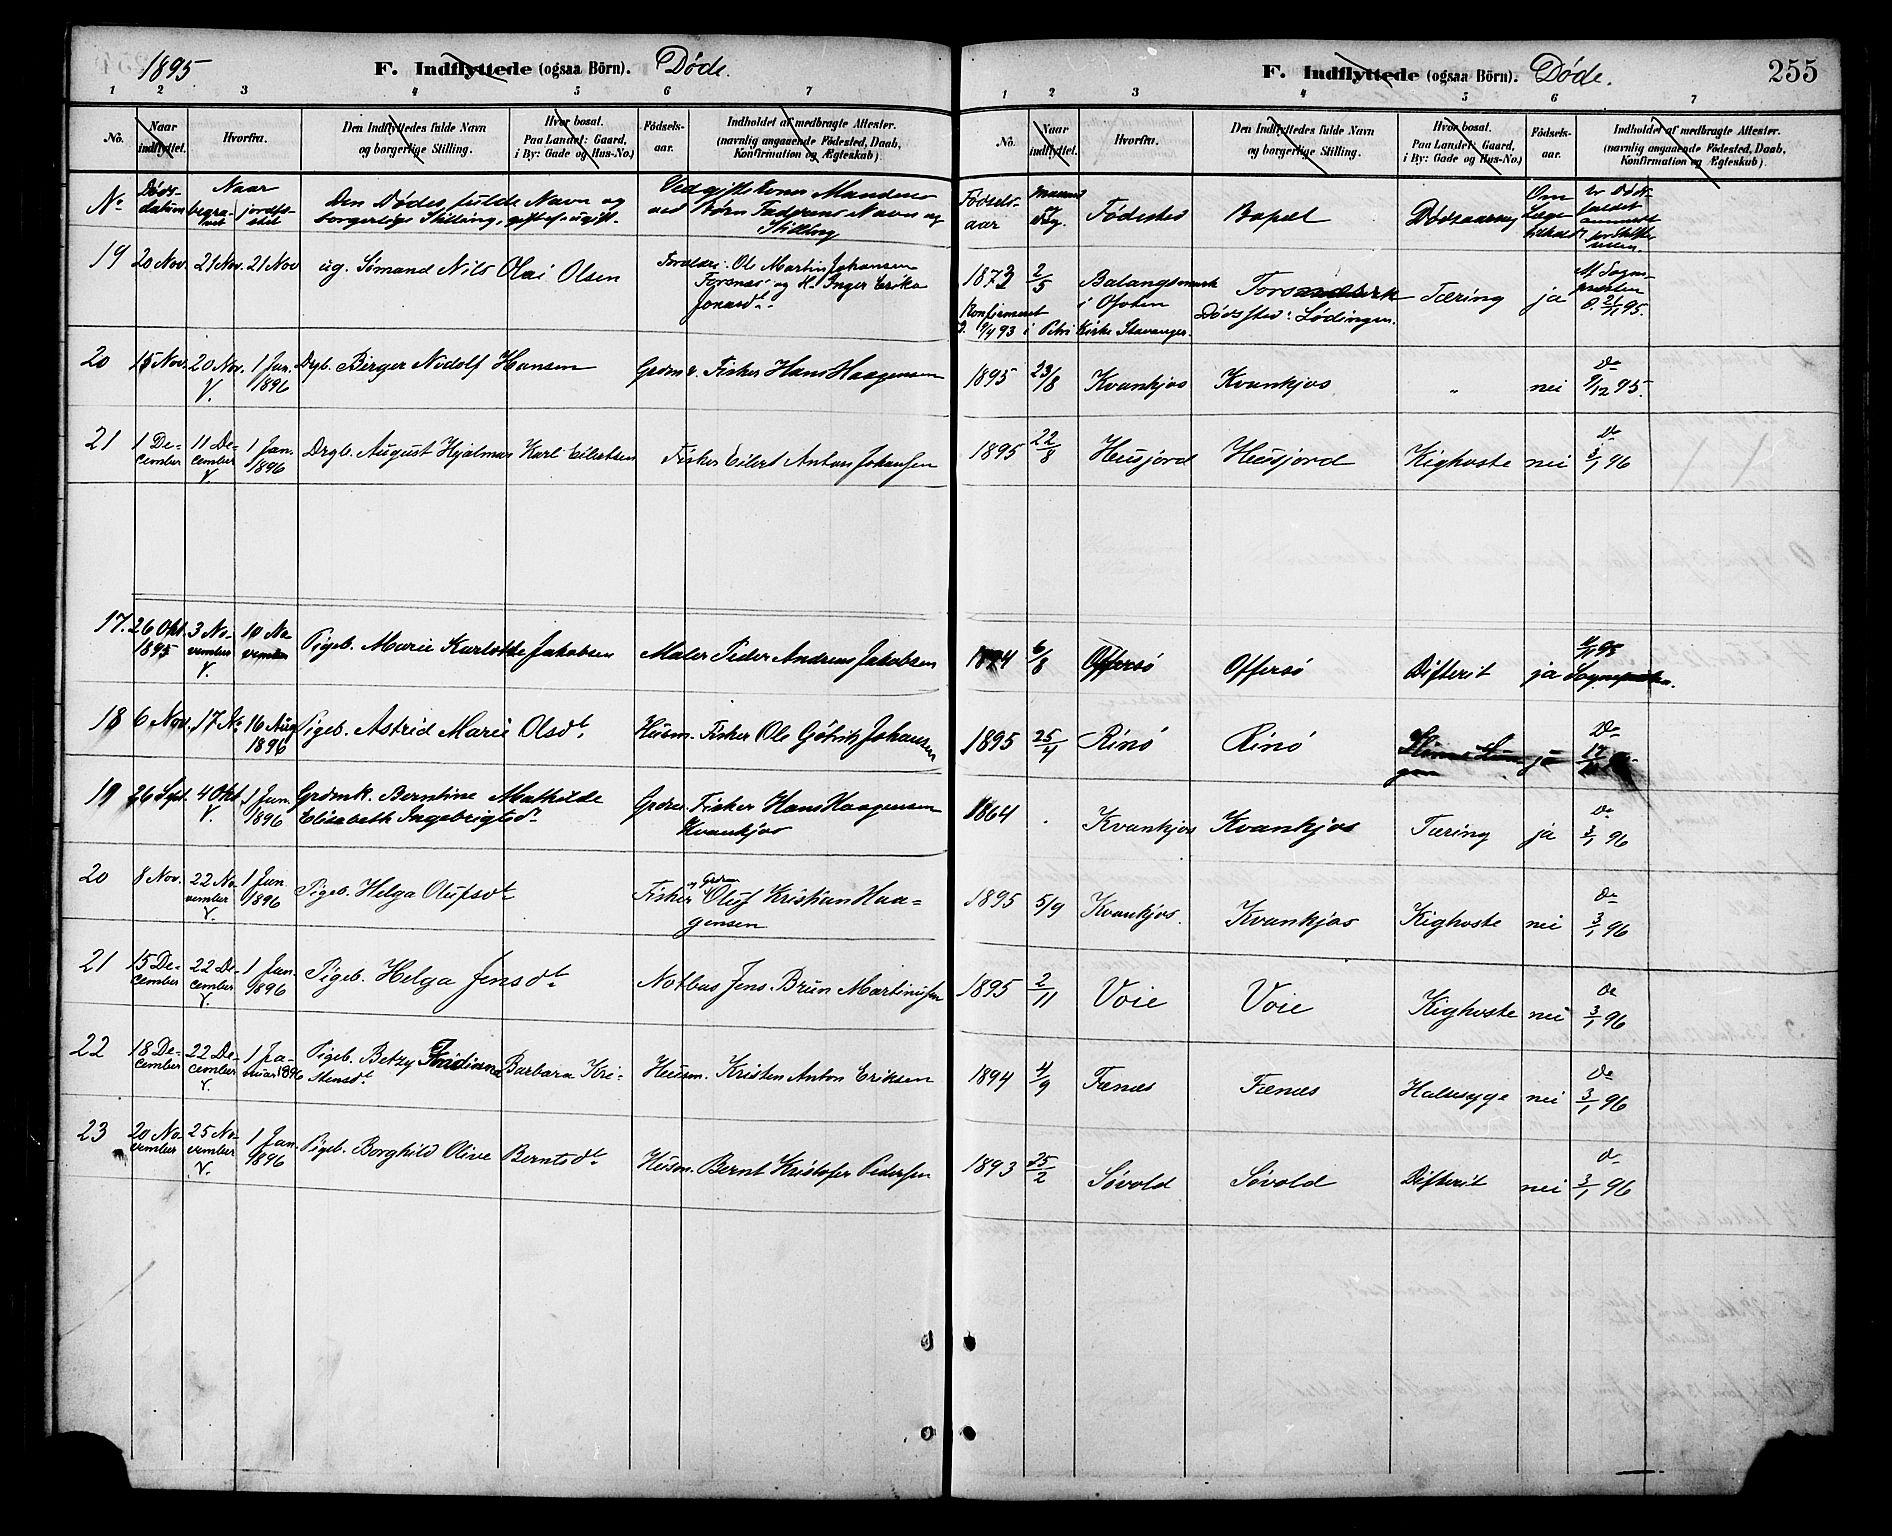 1895
F. Indflyttede (ogsaa Börn). Døde.
1 2 3 4 5 6 7
No. Naar indflyttet. Hvorfra. Den Indflyttedes fulde Navn og borgerlige Stilling. Hvor bosat. Paa Landet: Gaard, i By: Gade og Hus-No.) Födsels-aar. Indholdet af medbragte Attester. (navnlig angaaende Födested, Daab, Konfirmation og Ægteskab).
No Døds-datum Naar begra-vet jordfæ-stet Den Dødes fulde Navn og borgerlige Stilling, gift el. ugift. Ved gifte Koner Mandens ved Børn Faderens Navn og Stilling
19 20 Nov. 21 Nov. 21 Nov ug. Sømand Nils Olai Olsen Forældre: Ole Martin Johansen Forsnæs og H. Inger Erika Jonasdt.
20 15 Nov. 20 Nov. V. 1 Jan. 1896 Drgb. Birger Nidolf Hansen Grdm. v. Fisker Hans Haagensen
21 1 De-cember 11 De-cember V. 1 Jan. 1896 Drgb. August Hjalmar Karl Eilertsen Fisker Eilert Antons Johansen
17. 26 Okt. 1895 3 No-vember V. 10 No-vember Pigeb. Marie Karlotte Jakobsen Maler Peder Andreas Jakobsen
18 6 Nov. 17 No. 16 Aug 1896 Pigeb. Astrid Marie Olsdt. Husm. Fisker Ole Götrik Johansen
19 26 Sept. 4 Okt. V. 1 Jan. 1896 Grdmk. Berntine Mathilde Elisabeth Ingebrigtsd. Grdm. Fisker Hans Haagensen Kvankjos
20 8 Nov. 22 No-vember V. 1 Jan 1896 Pigeb. Helga Olufsdt. Fisker og Grdm Oluf Kristian Haa-gensen
21 15 De-cember 22 De-cember V. 1 Jan. 1896 Pigeb. Helga Jensdt. Notbas Jens Brun Martinusen
22 18 De-cember 22 De-cember V. 1 Ja-nuar 1896 Pigeb. Betzy Fridinna Barbara Kri-stensdt. Husm. Kristen Anton Eriksen
23 20 No-vember 25 No-vember V. 1 Jan. 1896 Pigeb. Borghild Olive Berntsdt. Husm. Bernt Kristofer Pedersen
F. Indflyttede (ogsaa Börn). Døde. 255
1 2 3 4 5 6 7
No. Naar indflyttet. Hvorfra. Den Indflyttedes fulde Navn og borgerlige Stilling. Hvor bosat. Paa Landet: Gaard, i By: Gade og Hus-No.) Födsels-aar. Indholdet af medbragte Attester. (navnlig angaaende Födested, Daab, Konfirmation og Ægteskab).
Fødsels-aar Maaned og Dag. Fødested Bopæl Dødsaarsag Om Læge tilkaldt Er Døds-faldet anmeldt for Skifte-retten
1873 2/5 Balangsmark i Ofoten Tæring ja
Konfirmeret 9/4 93 i Petri Kirke Stavanger. Dødssted: Lødingen. 21/11 95.
1895 23/8 Kvankjos Kvankjos " nei Do 9/12 95.
1895 22/8 Husjord Husjord Kighoste nei Do 3/1 96
6/8 Offersö Offersö Difterit ja
1895 25/4 Rinö Rinö ja Do
1864 . Kvankjos Kvankjos Tæring ja Do 3/1 96
1895 5/9 Kvankjos. Kvankjos Kighoste nei Do 3/1 96
1895 2/11 Voie Voie Kighoste nei Do 3/1 96
1894 4/9 Fænæs Fænæs Halssyge nei Do 3/1 96
1893 25/2 Søvold Søvold Difterit nei Do 3/1 96